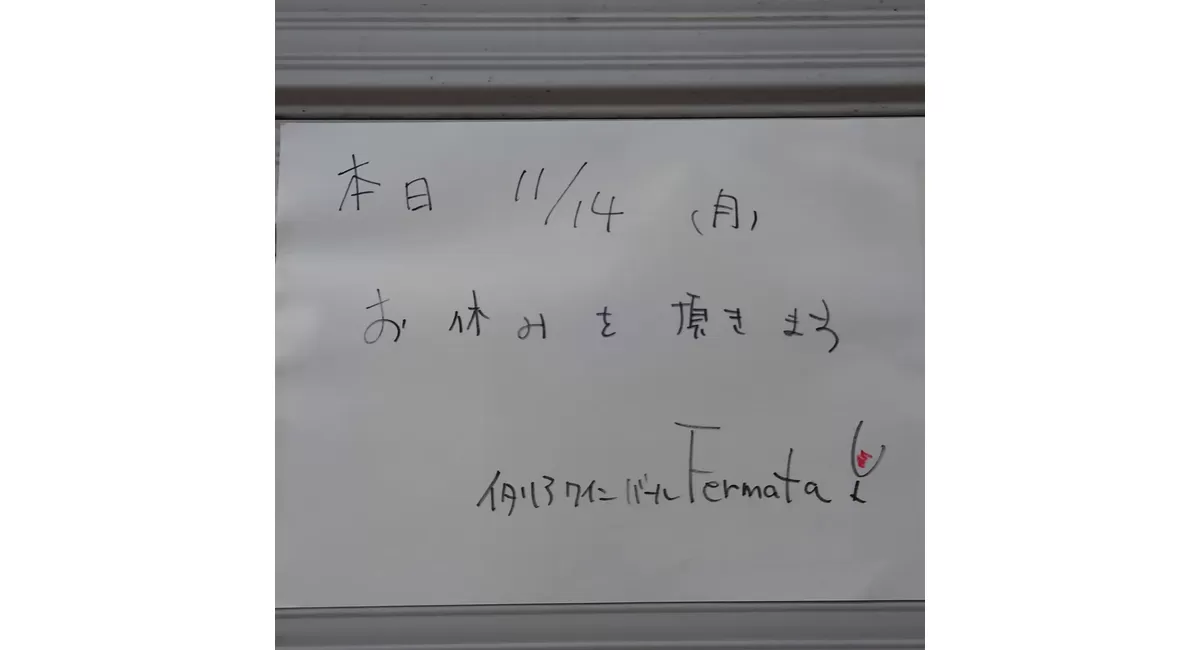 本日 11/14 (月)
お休みを頂きます
イタリアワインバール Fermata